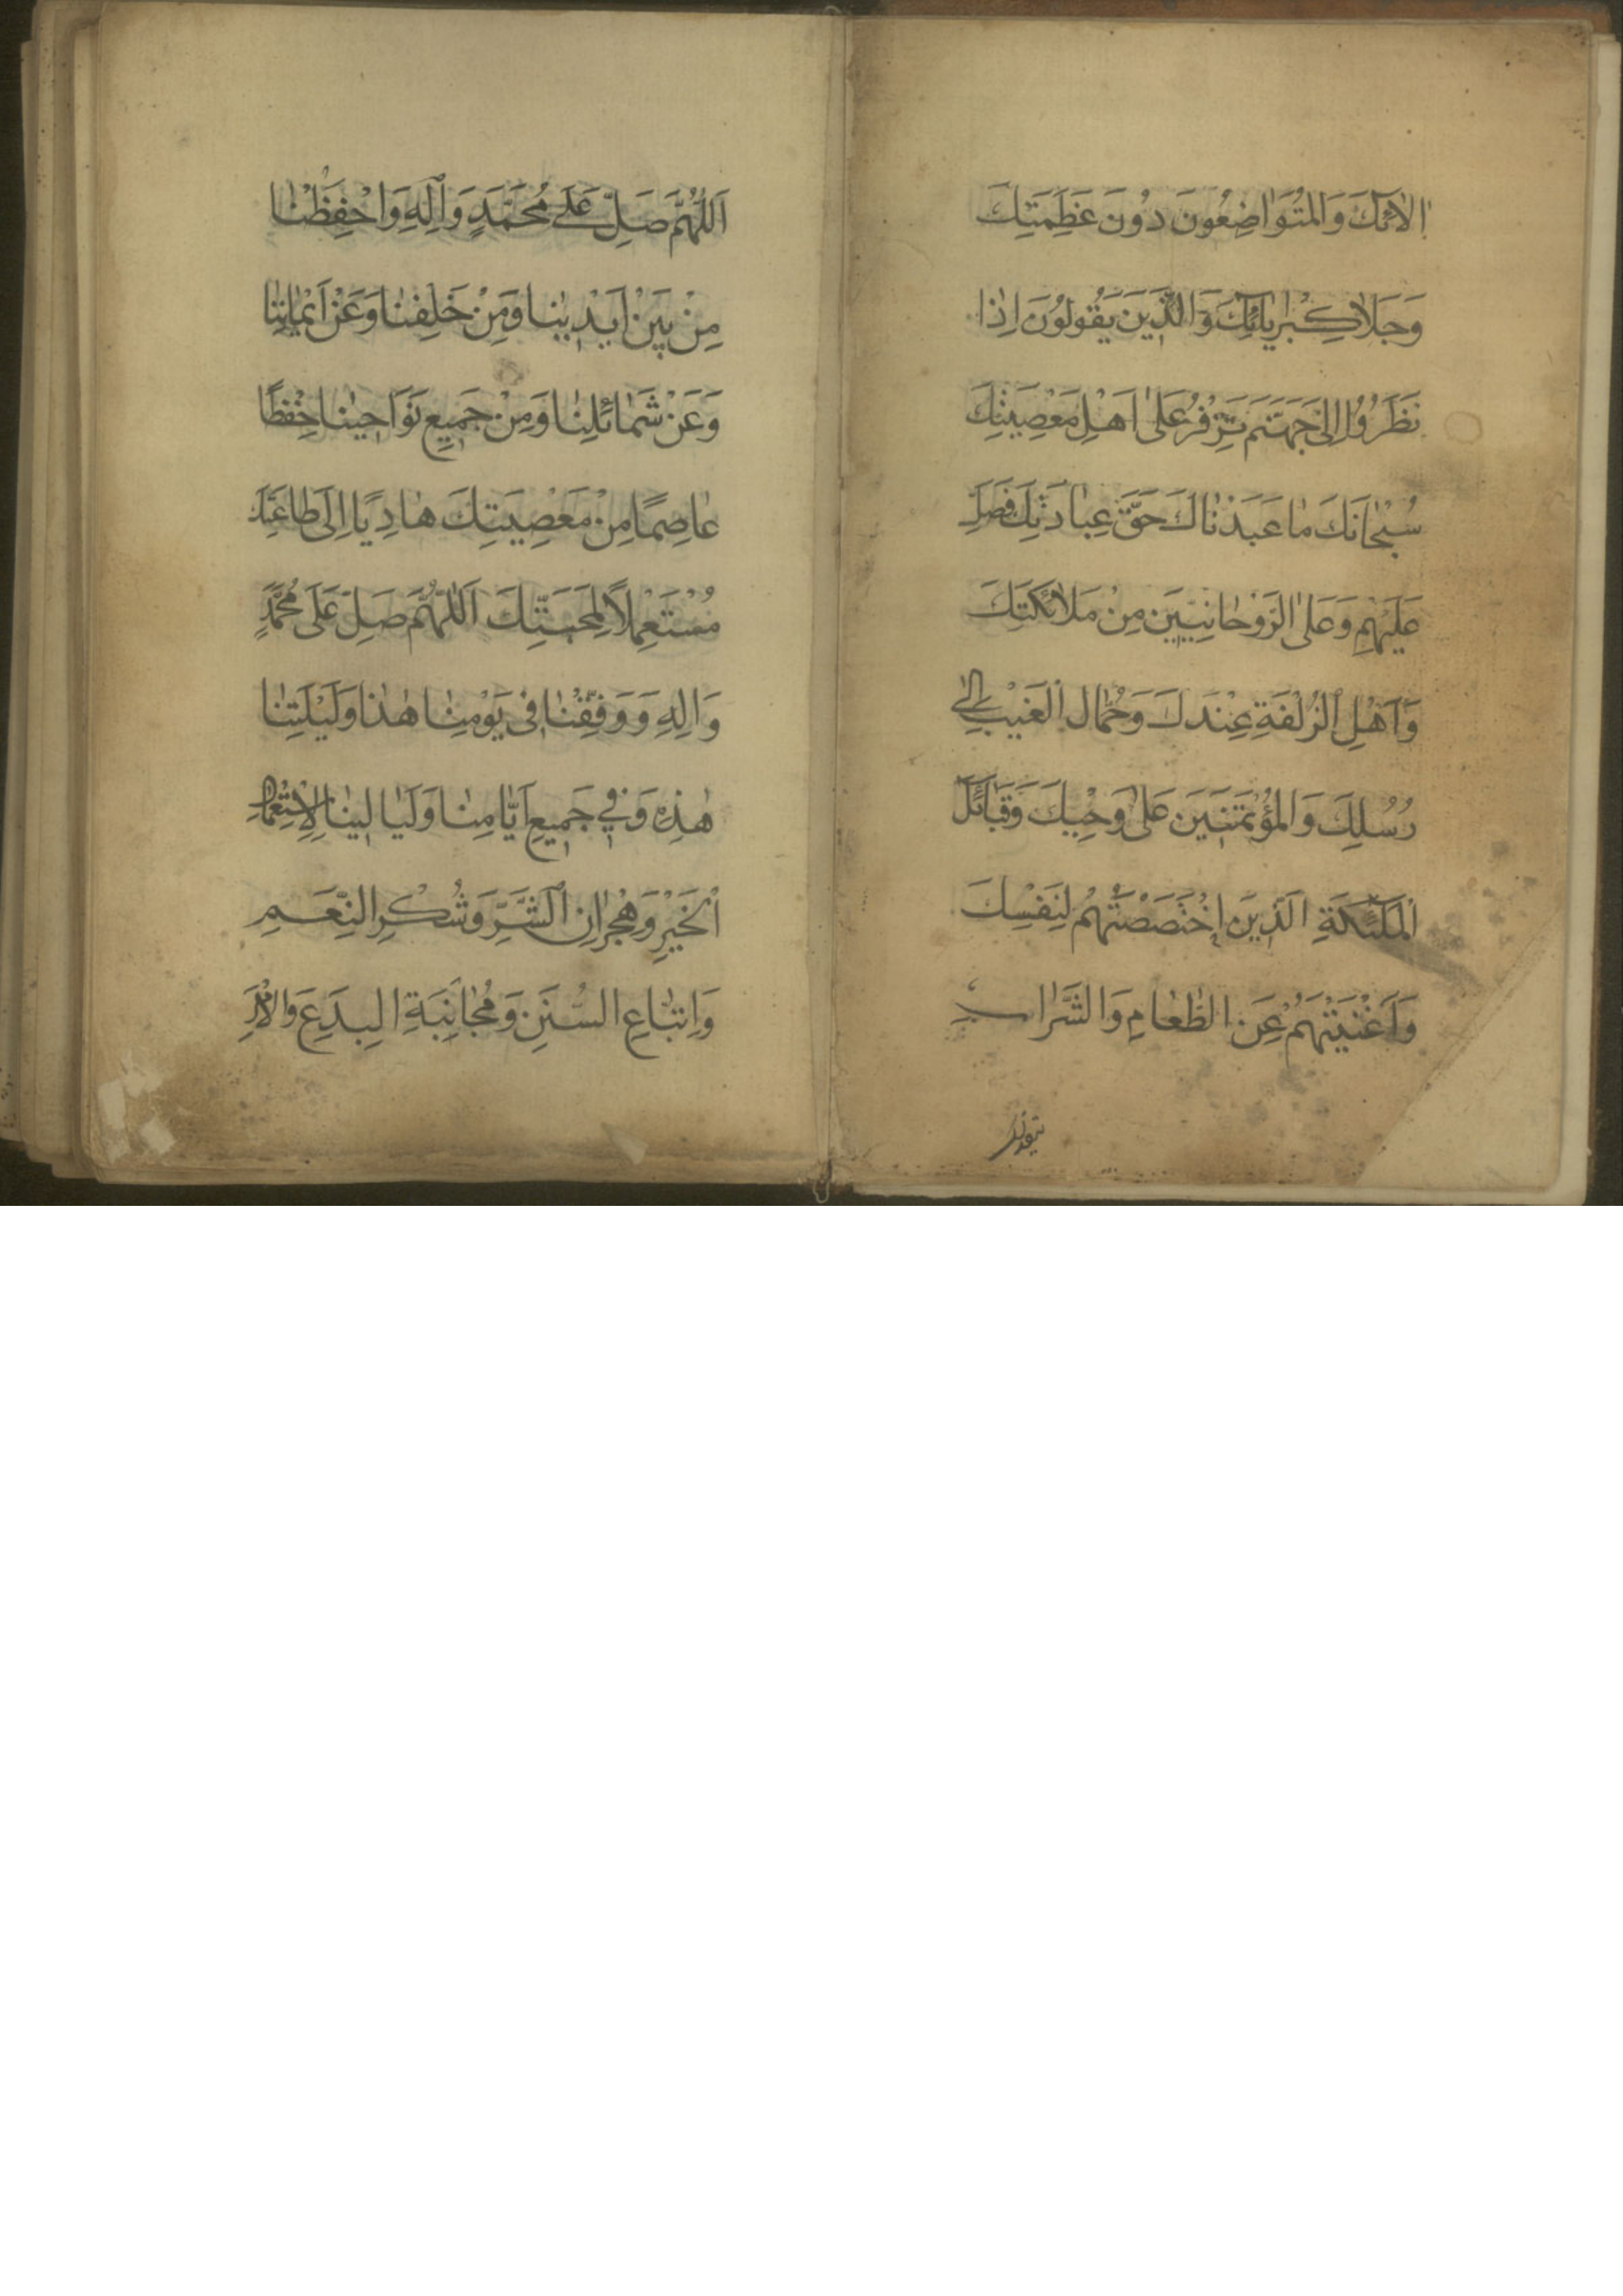 اٰلاٰئِكَ وَالمُتَوٰاضِعُونَ دُونَ عَظِمَتِكَ
وَجَلاٰلِ كِبْرِيٰائِكَ وَالَّذِينَ يَقُولُونَ اِذٰا
نَظَرُوُا اِلىٰ جَهَنَّمَ تَزْفِرُ عَلىٰ اَهْلِ مَعْصِيَتِكَ
سُبْحٰانَكَ مٰا عَبَدْنٰاكَ حَقَّ عِبٰادَتِكَ فَصَلِّ
عَلَيْهِمِ وَعَلىٰ الرَّوْحٰانِيّٖينَ مِنْ مَلاٰئِكَتِكَ
وَاَهْلِ الزُلْفَةِ عِنْدَكَ وَحُمّٰالِ الْغَيْبِ اِلىٰ
رُسُلِكَ وَالمُؤْتَمَنِينَ عَلىٰ وَحْيِكَ وَقَبٰائِلِ
الْمَلٰئِكَةِ الَّذِينَ اخْتَصَصْتَهُمْ لِنَفْسِكَ
وَاَغْنَيْتَهُمْ عَنِ الطَّعٰامِ وَالشَّرٰابِ
اَللّٰهُمَّ صَلِّ عَلٰى مُحَمَّدٍ وَاٰلِهِ وَاحْفِظْنٰا
مِنْ بَيْنِ اَيْدِينٰا وَمِنْ خَلِفنٰا وَعَنْ اَيْمٰانِنٰا
وَعَنْ شَمٰائِلِنٰا وَمِنْ جَمٖيعِ نَوَاحٖينٰا حِفْظًا
عٰاصِمًا مِنْ مَعْصِيَتِكَ هٰادِيًا اِلَى طٰاعَتِكَ
مُسْتَعْمِلاً لِمَحَبَّتِكَ اَللّٰهُمَّ صَلِّ عَلَى مُحَمَّدٍ
وَاٰلِهِ وَوَفِّقْنٰا فٖى يَوْمِنٰا هٰذٰا وَلَيْلَتِنٰا
هٰذِهِ وَفٖي جَمٖيعِ اَيّٰامِنٰا وَلَيٰالٖينٰا لِاِسْتِعْمٰالِ
الْخَيْرِ وَهِجْرٰانِ الشَّرِّ وَشُكْرِ النِّعَمِ
وَاِتبّٰاعِ السُّنَنِ وَمُجٰانَبَةِ الْبِدَعِ وَالْاَمْرِ